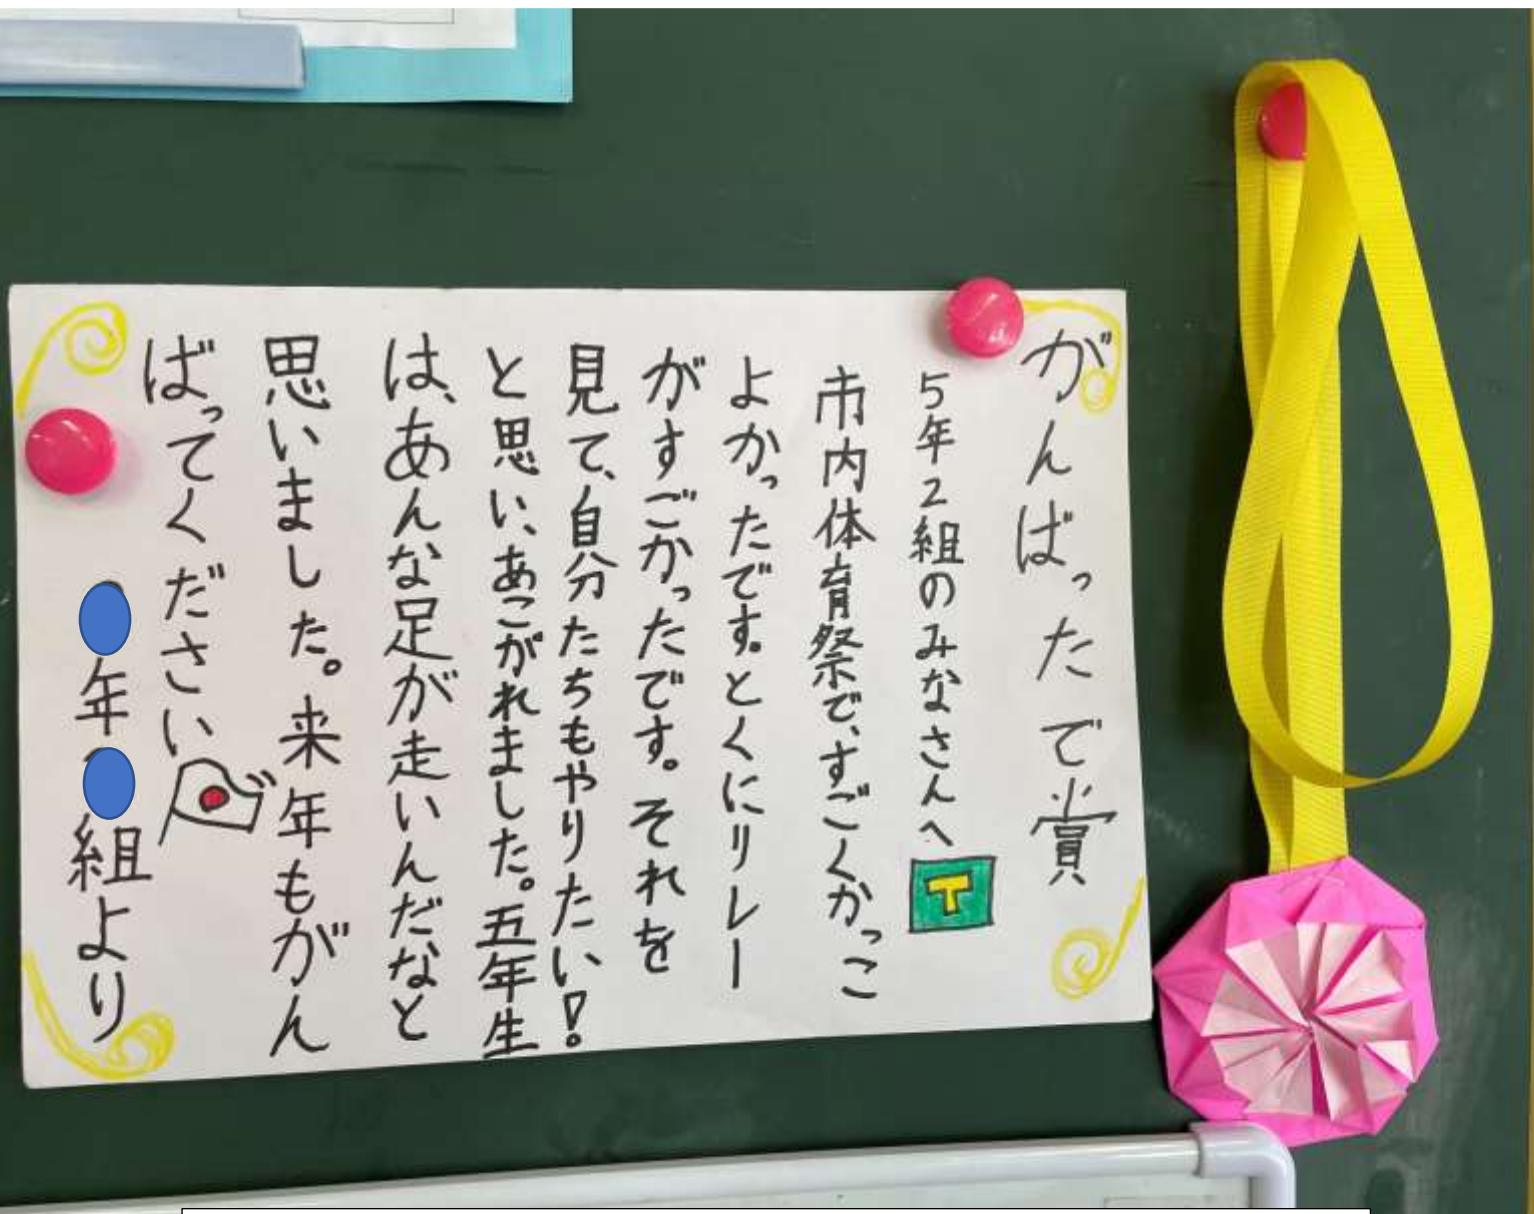 がんばったで賞
5年2組のみなさんへ
市内体育祭で、すごくかっこ
よかったです。とくにリレー
がすごかったです。それを
見て、自分たちもやりたい!
と思い、あこがれました。五年生
は、あんな足が走いんだなと
思いました。来年もがん
ばってください
年 組より